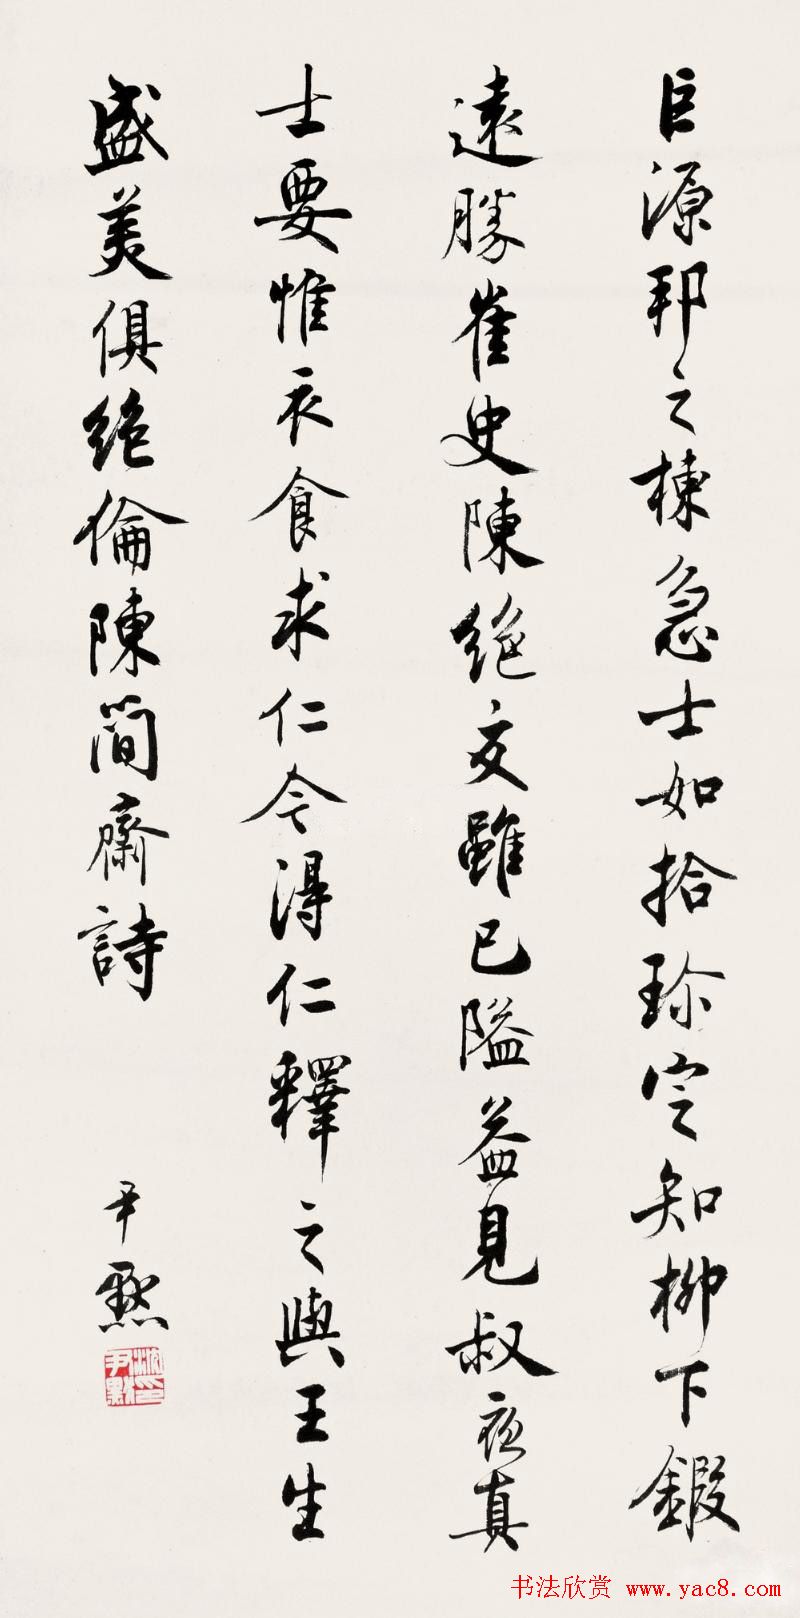 巨源邦之棟急士如拾珍定知柳下鍛
遠勝崔史陳絕交雖已隘益見叔夜真
士要惟衣食求仁今得仁釋之與王生
盛美俱絕倫陳簡齋詩
尹默
沈尹默印
书法欣赏 www.yac8.com